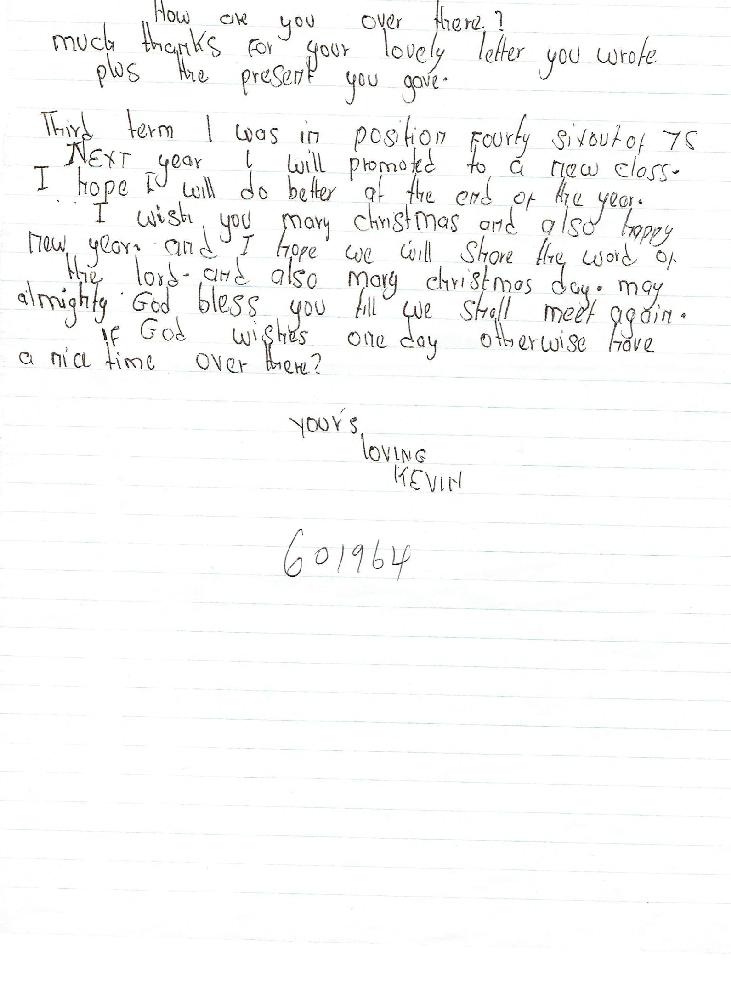 How are you over there.?
much thanks for your lovely letter you wrote
plus the present you gave.
Third term I was in position fourty sixout of 75
NEXT year I will promoted to a new class.
I hope I will do better at the end of the year.
I wish you mary christmas and also happy
new year. and I hope we will share the word of
the lord. and also mary christmas day. may
almighty God bless you till we shall meet again.
if God wishes one day otherwise have
a nice time over there?
your's
loving
KEVIN
601964